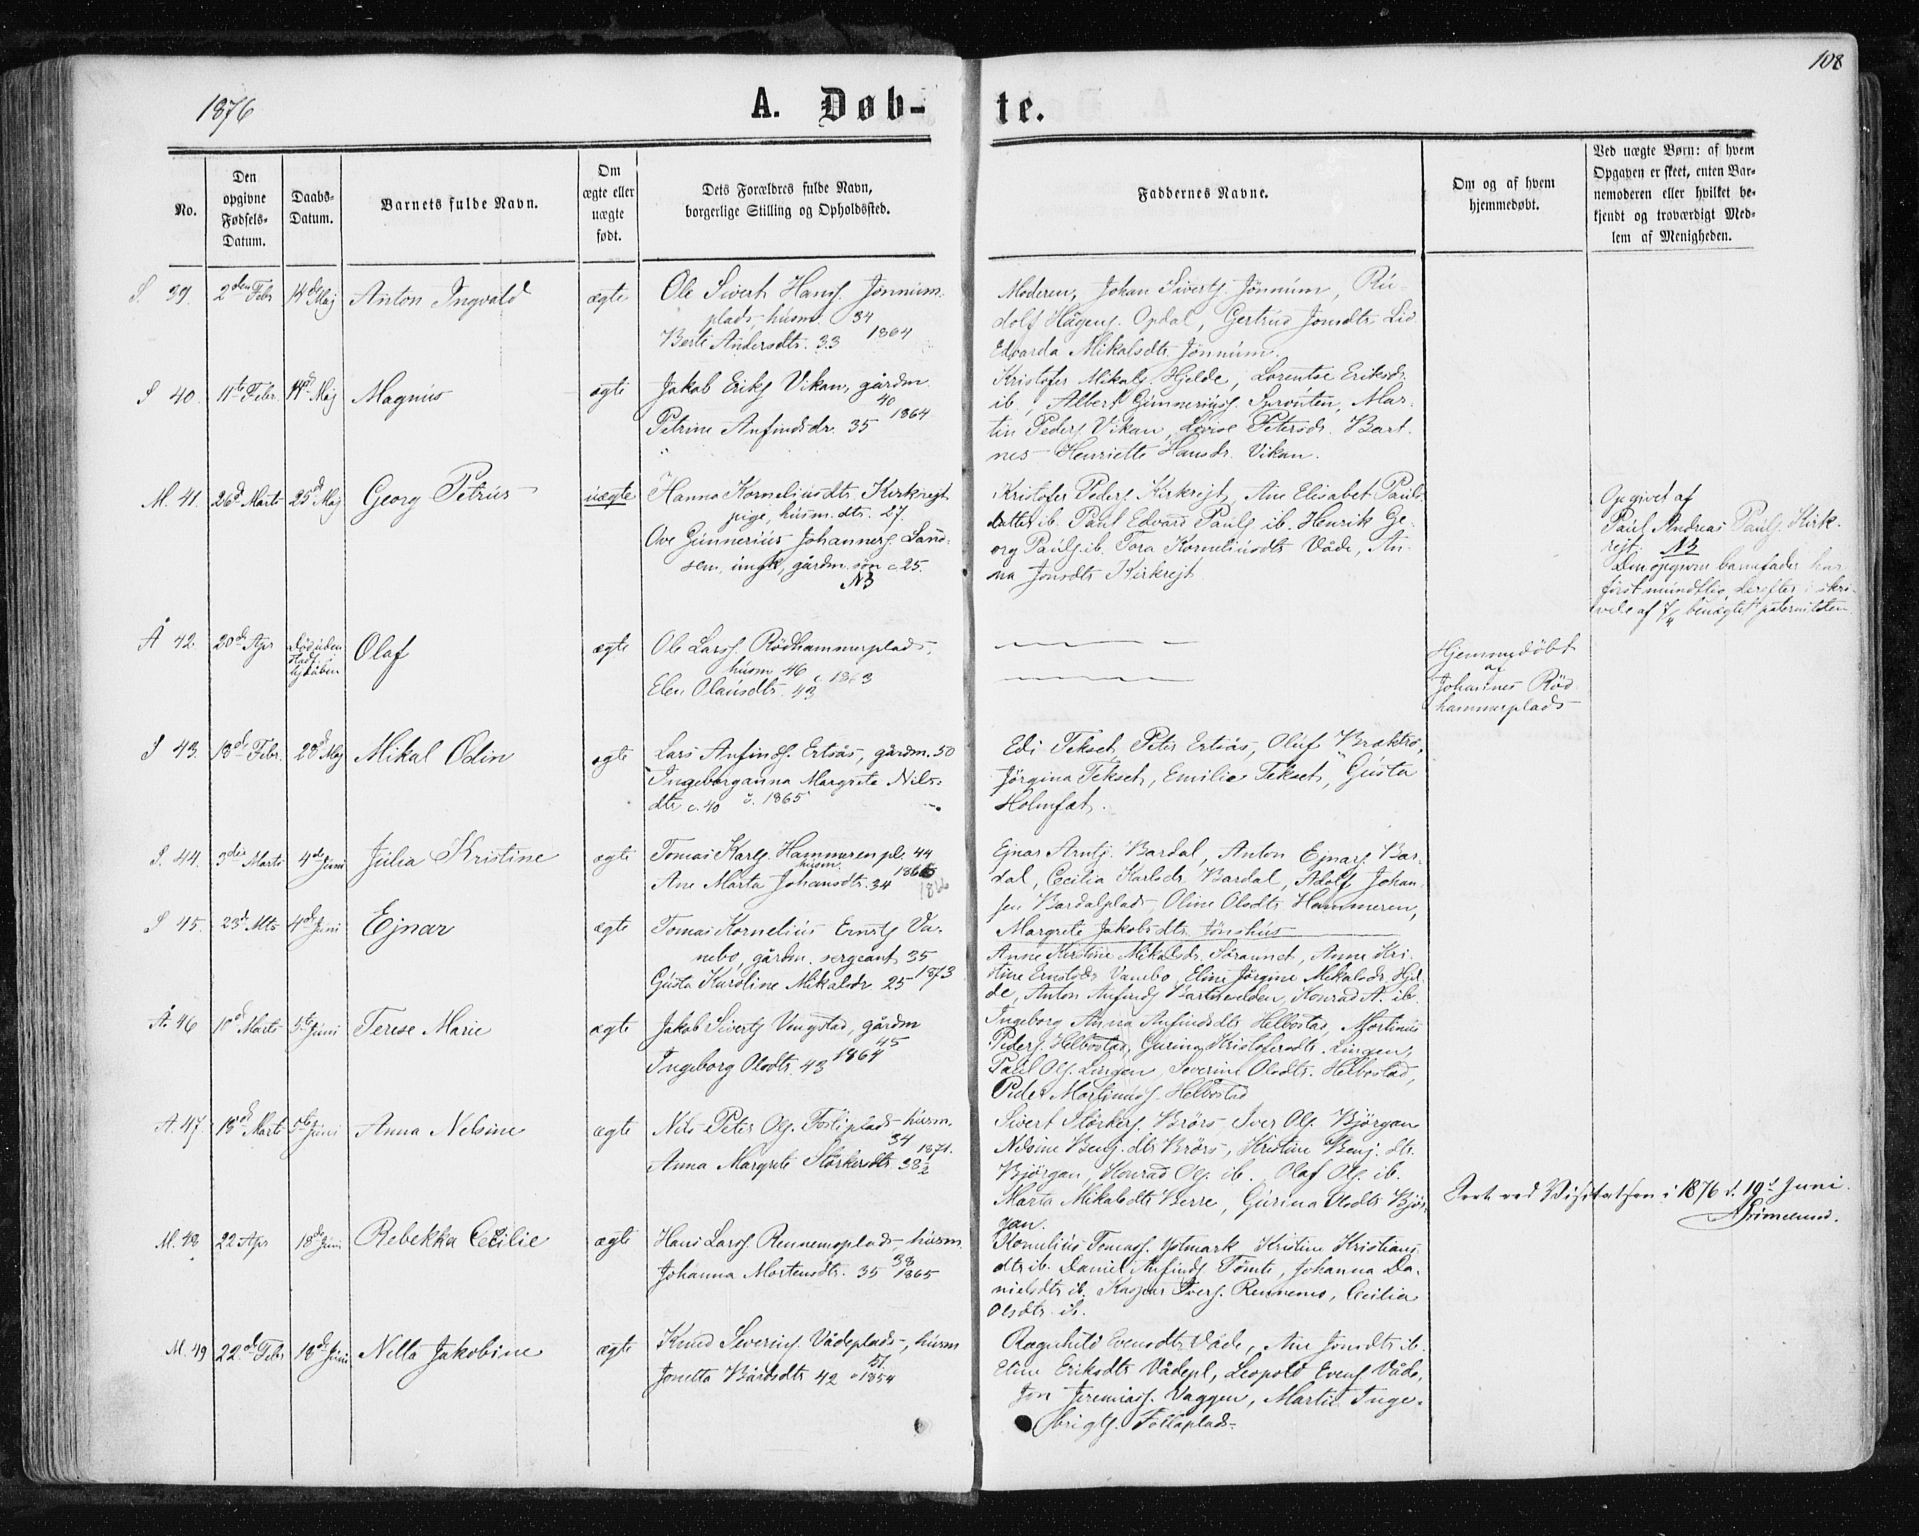 108
1876
A. Døb-
te.
No.
Den
opgivne
Fødsels-
Datum.
Daabs-
Datum.
Barnets fulde Navn.
Om
ægte eller
uægte
født.
Dets Forældres fulde Navn,
borgerlige Stilling og Opholdssted.
Faddernes Navne.
Om og af hvem
hjemmedøbt.
Ved uægte Børn: af hvem
Opgaven er skeet, enten Bar-
nemoderen eller hvilket be-
kjendt og troværdigt Med-
lem af Menigheden.
S. 39. 2den Febr 14de Maj Anton Ingvald ægte
Ole Sivert Hanss. Jönnum-
plads, husm. 34
Berit Andersdtr. 33 1864
Moderen, Johan Siverts. Jönnum, Ru-
dolf Hågens. Opdal, Gertrud Jonsdtr Lid
Edvarda Mikalsdtr. Jönnum.
S 40. 11te Febr. 14d Maj Magnus ægte
Jakob Eriks Vikan, gårdm.
40
Petrine Anfindsdr. 35 1864
Kristofer Mikals. Hjelde, Lorentse Eriksdr.
ib, Albert Gunneriuss. Spronten, Mar-
tin Peders Vikan, Lovise Petersdr. Bart-
nes Henriette Hansdr. Vikan.
M. 41. 26d Marts 25d Maj Georg Petrus uægte
Hanna Korneliusdtr. Kirkrejt
pige, husm. dtr. 27.
Ove Gunnerius Johanness. Land-
sem, ungk, gårdm. søn c 25.
NB
Kristofer Peders Kirkrejt, Ane Elisabet Pauls-
datter ib. Paul Edvard Pauls ib. Henrik Ge-
org Pauls. ib. Tora Korneliusdtr Våde, An-
na Jonsdtr Kirkrejt
Opgivet af
Paul Andreas Pauls. Kirk-
rejt. NB
Den opgivne barnefader har
först mundtlig, derefter i skri-
velse af 7/4 benægtet paterniteten.
Å 42. 20de Apr Död uden
Olaf ægte
Ole Larss. Rödhammerplads,
husm 46
Elen Olausdtr. 43
Hjemmedöbt
af
Johannes Röd
hammerplads
S 43. 18de Febr. 28d Maj Mikal Odin ægte
Lars Anfinds. Ertsås, gårdm. 50
Ingeborganna Margrete Nils-
dtr c. 40 1865
Edi Tekset, Peter Ertsås, Oluf Braktrø,
Jörgina Tekset, Emilie Tekset, Gusta
Holmset.
S. 44. 3die Marts 4de Juni Julia Kristine ægte
Tomas Karls. Hammeren pl. 44
husm.
Ane Marta Johansdtr. 34
1866
Ejnar Arnts. Bardal, Anton Ejnars. Bar-
dal, Cecilia Karlsdr. Bardal, Adolf Johan-
sen Bardalplads, Oline Olsdtr Hammeren,
Margrete Jakobsdtr. Jönshus
S 45. 23d Mts 4de Juni Ejnar ægte
Tomas Kornelius Ernsts Va-
nebo, gårdm. sergeant 35
Gusta Karoline Mikalsdr 25 1873
Anne Kirstine Mikalsdr. Söraunet, Anne Kri-
stine Ernstsdr Vanebo, Eline Jörgine Mikalsdr. Hjel-
de, Anton Anfinds Bartnesvalden, Konrad A. ib.
Å. 46 10d Marts 5te Juni Terese Marie ægte
Jakob Siverts Vengstad, gårdm
45
Ingeborg Olsdtr. 43 1864
Ingeborg Anna Anfindsdtr Helbostad, Mortinus
Peders. Helbostad, Gurina Kristofersdtr. Lingen,
Paul Ols. Lingen, Severine Olsdtr. Helbostad,
Peder Mortinuss. Helbostad
Å. 47. 18d Marts 5te Juni Anna Nelsine ægte
Nils Peter Ols. Fosliplads, husm.
34 1871.
Anna Margrete Störkersdtr. 38½
Sivert Störkers. Brörs Iver Ols. Björgan
Benj. dtr Brörs, Kristine Benj. dtr.
Björgan, Konrad Ols. ib. Olaf Ols. ib.
Marta Mikalsdtr Berre, Gurina Olsdtr Björ-
gan.
Seet ved Visitatsen i 1876 d. 19d Juni.
AGrimelund.
M. 48 22 Apr 18de Juni Rebekka Cecilie ægte
Hans Larss. Rennemsplads, husm.
38
Johanna Mortensdtr. 35 1865
Kornelius Tomass. Ystmark Kristine Kristians
dtr ib. Daniel Anfinds Tömte, Johanna Da-
nielsdtr ib. Kaspar Ivers. Rennemo, Cecilia
Olsdtr. ib.
M. 49 22de Febr 18de Juni Nella Jakobine ægte
Knud Severins. Vådeplads, husm
51.
Jonetta Bårdsdtr 42 1854
Ragnhild Evensdtr Våde, Ane Jonsdtr ib.
Eline Eriksdtr Vådepl, Leopold Evens Våde,
Jon Jeremiass. Vaggen, Martin Inge-
brigts. Follaplads